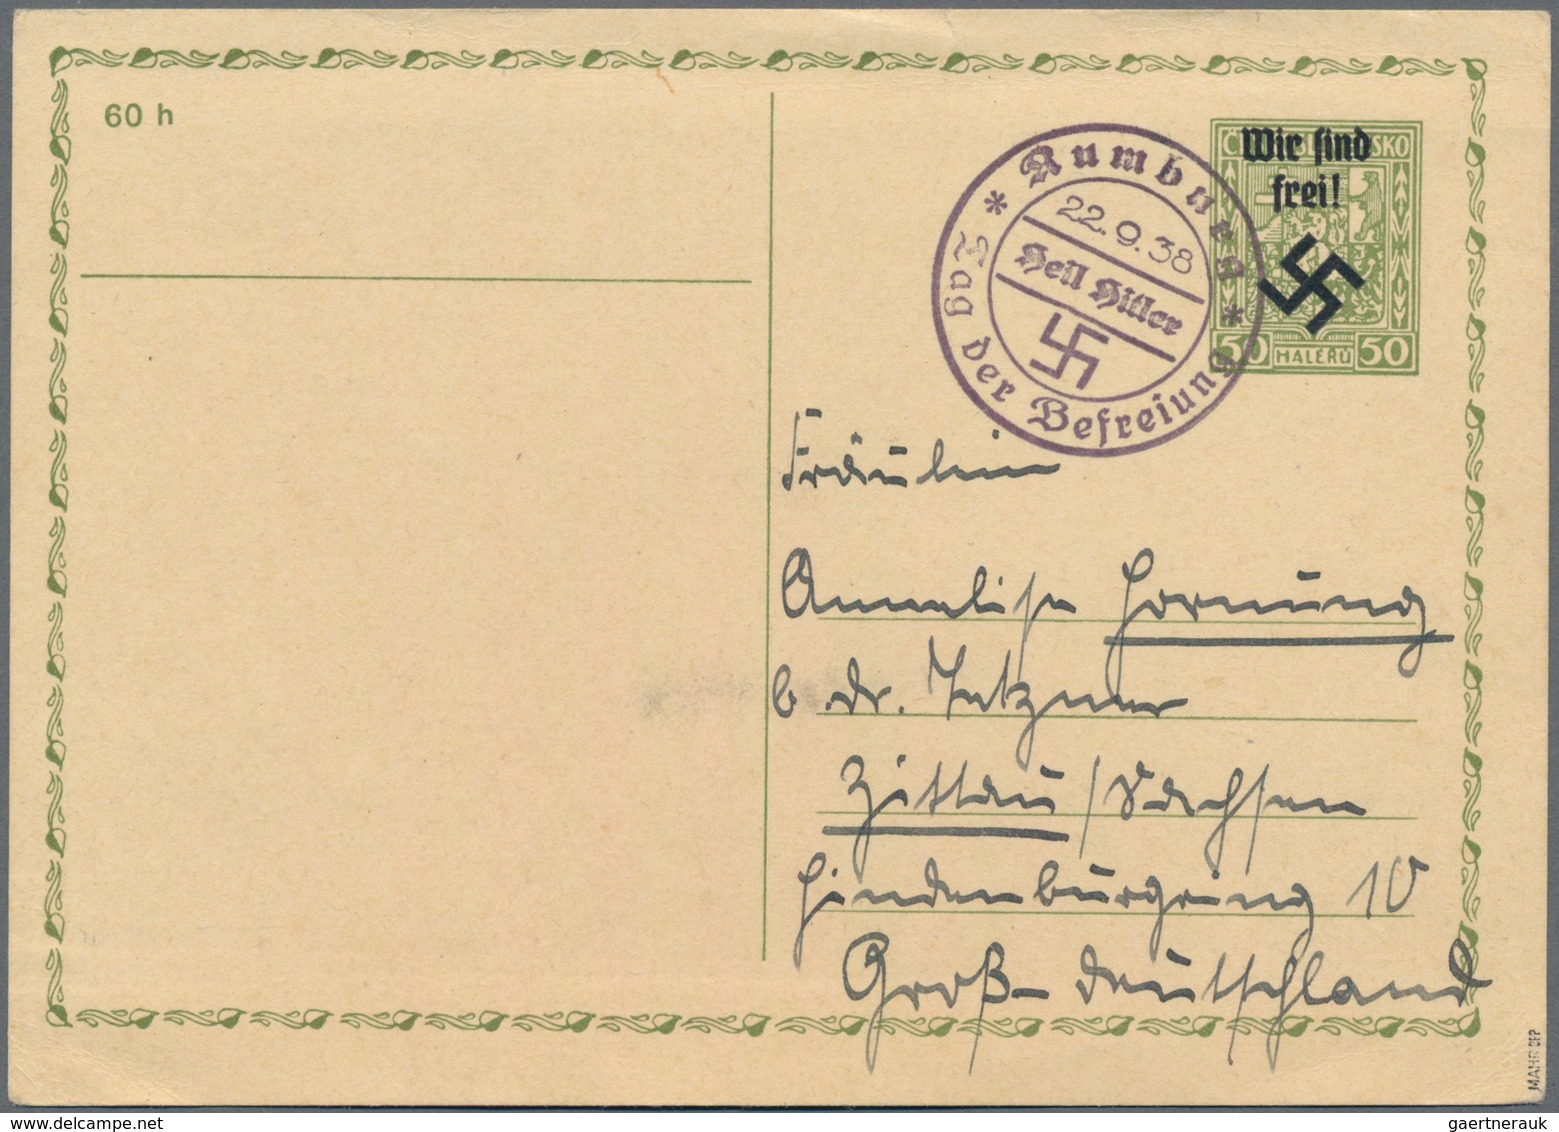 60 h
Wir sind
frei!
50 HALÉRŮ 50
* Rumburg *
22.9.38
Heil Hitler
Tag der Befreiung
Fräulein
Annelise Hornung
b. Dr. Tetzner
Zittau / Sachsen
Hindenburgring 10
Groß-deutschland
MAHR BPP
gaertnerauk @ delcampe.net